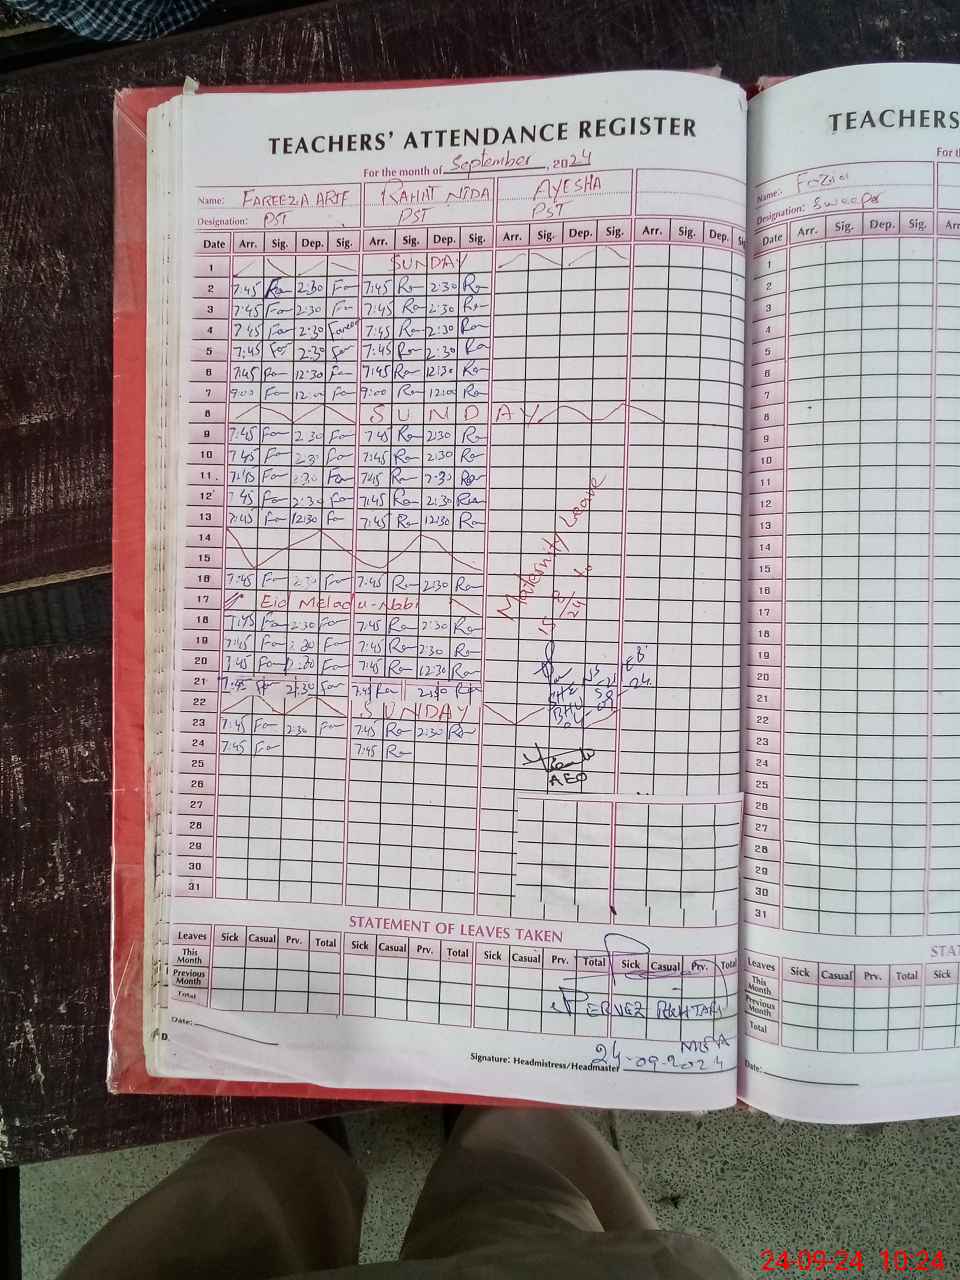 TEACHERS' ATTENDANCE REGISTER
For the month of September, 2024
Name: FAREEZA ARIF RAHAT NIDA AYESHA
Designation: PST PST PST
Date Arr. Sig. Dep. Sig. Arr. Sig. Dep. Sig. Arr. Sig. Dep. Sig. Arr. Sig. Dep. Sig.
1 SUNDAY
2 7:45 Fa 2:30 Fa 7:45 Ra 2:30 Ra
3 7:45 Fa 2:30 Fa 7:45 Ra 2:30 Ra
4 7:45 Fa 2:30 Fareeza 7:45 Ra 2:30 Ra
5 7:45 Fa 2:30 Fa 7:45 Ra 2:30 Ra
6 7:45 Fa 12:30 Fa 7:45 Ra 12:30 Ra
7 9:00 Fa 12:00 Fa 9:00 Ra 12:00 Ra
8 SUNDAY
9 7:45 Fa 2:30 Fa 7:45 Ra 2:30 Ra
10 7:45 Fa 2:30 Fa 7:45 Ra 2:30 Ra
11 7:45 Fa 2:30 Fa 7:45 Ra 2:30 Ra
12 7:45 Fa 2:30 Fa 7:45 Ra 2:30 Ra
13 7:45 Fa 12:30 Fa 7:45 Ra 12:30 Ra
14
15
16 7:45 Fa 2:30 Fa 7:45 Ra 2:30 Ra
17 Eid Melad u-Nabi
18 7:45 Fa 2:30 Fa 7:45 Ra 2:30 Ra
19 7:45 Fa 2:30 Fa 7:45 Ra 2:30 Ra
20 7:45 Fa 12:30 Fa 7:45 Ra 12:30 Ra
21 7:45 Fa 2:30 Fa 7:45 Ra 2:30 Ra
22 SUNDAY
23 7:45 Fa 2:30 Fa 7:45 Ra 2:30 Ra
24 7:45 Fa 7:45 Ra
25
26
27
28
29
30
31
Maternity Leave
15 8/24 to
AEO
STATEMENT OF LEAVES TAKEN
Leaves Sick Casual Prv. Total Sick Casual Prv. Total Sick Casual Prv. Total Sick Casual Prv. Total
This Month
Previous Month
Total
PERVEZ AKHTAR
MEA
Date:
Signature: Headmistress/Headmaster 24-09-2024
TEACHERS
For th
Name: Fozia
Designation: Sweeper
Date Arr. Sig. Dep. Sig. Arr
1
2
3
4
5
6
7
8
9
10
11
12
13
14
15
16
17
18
19
20
21
22
23
24
25
26
27
28
29
30
31
STAT
Leaves Sick Casual Prv. Total Sick
This Month
Previous Month
Total
Date:
24-09-24 10:24